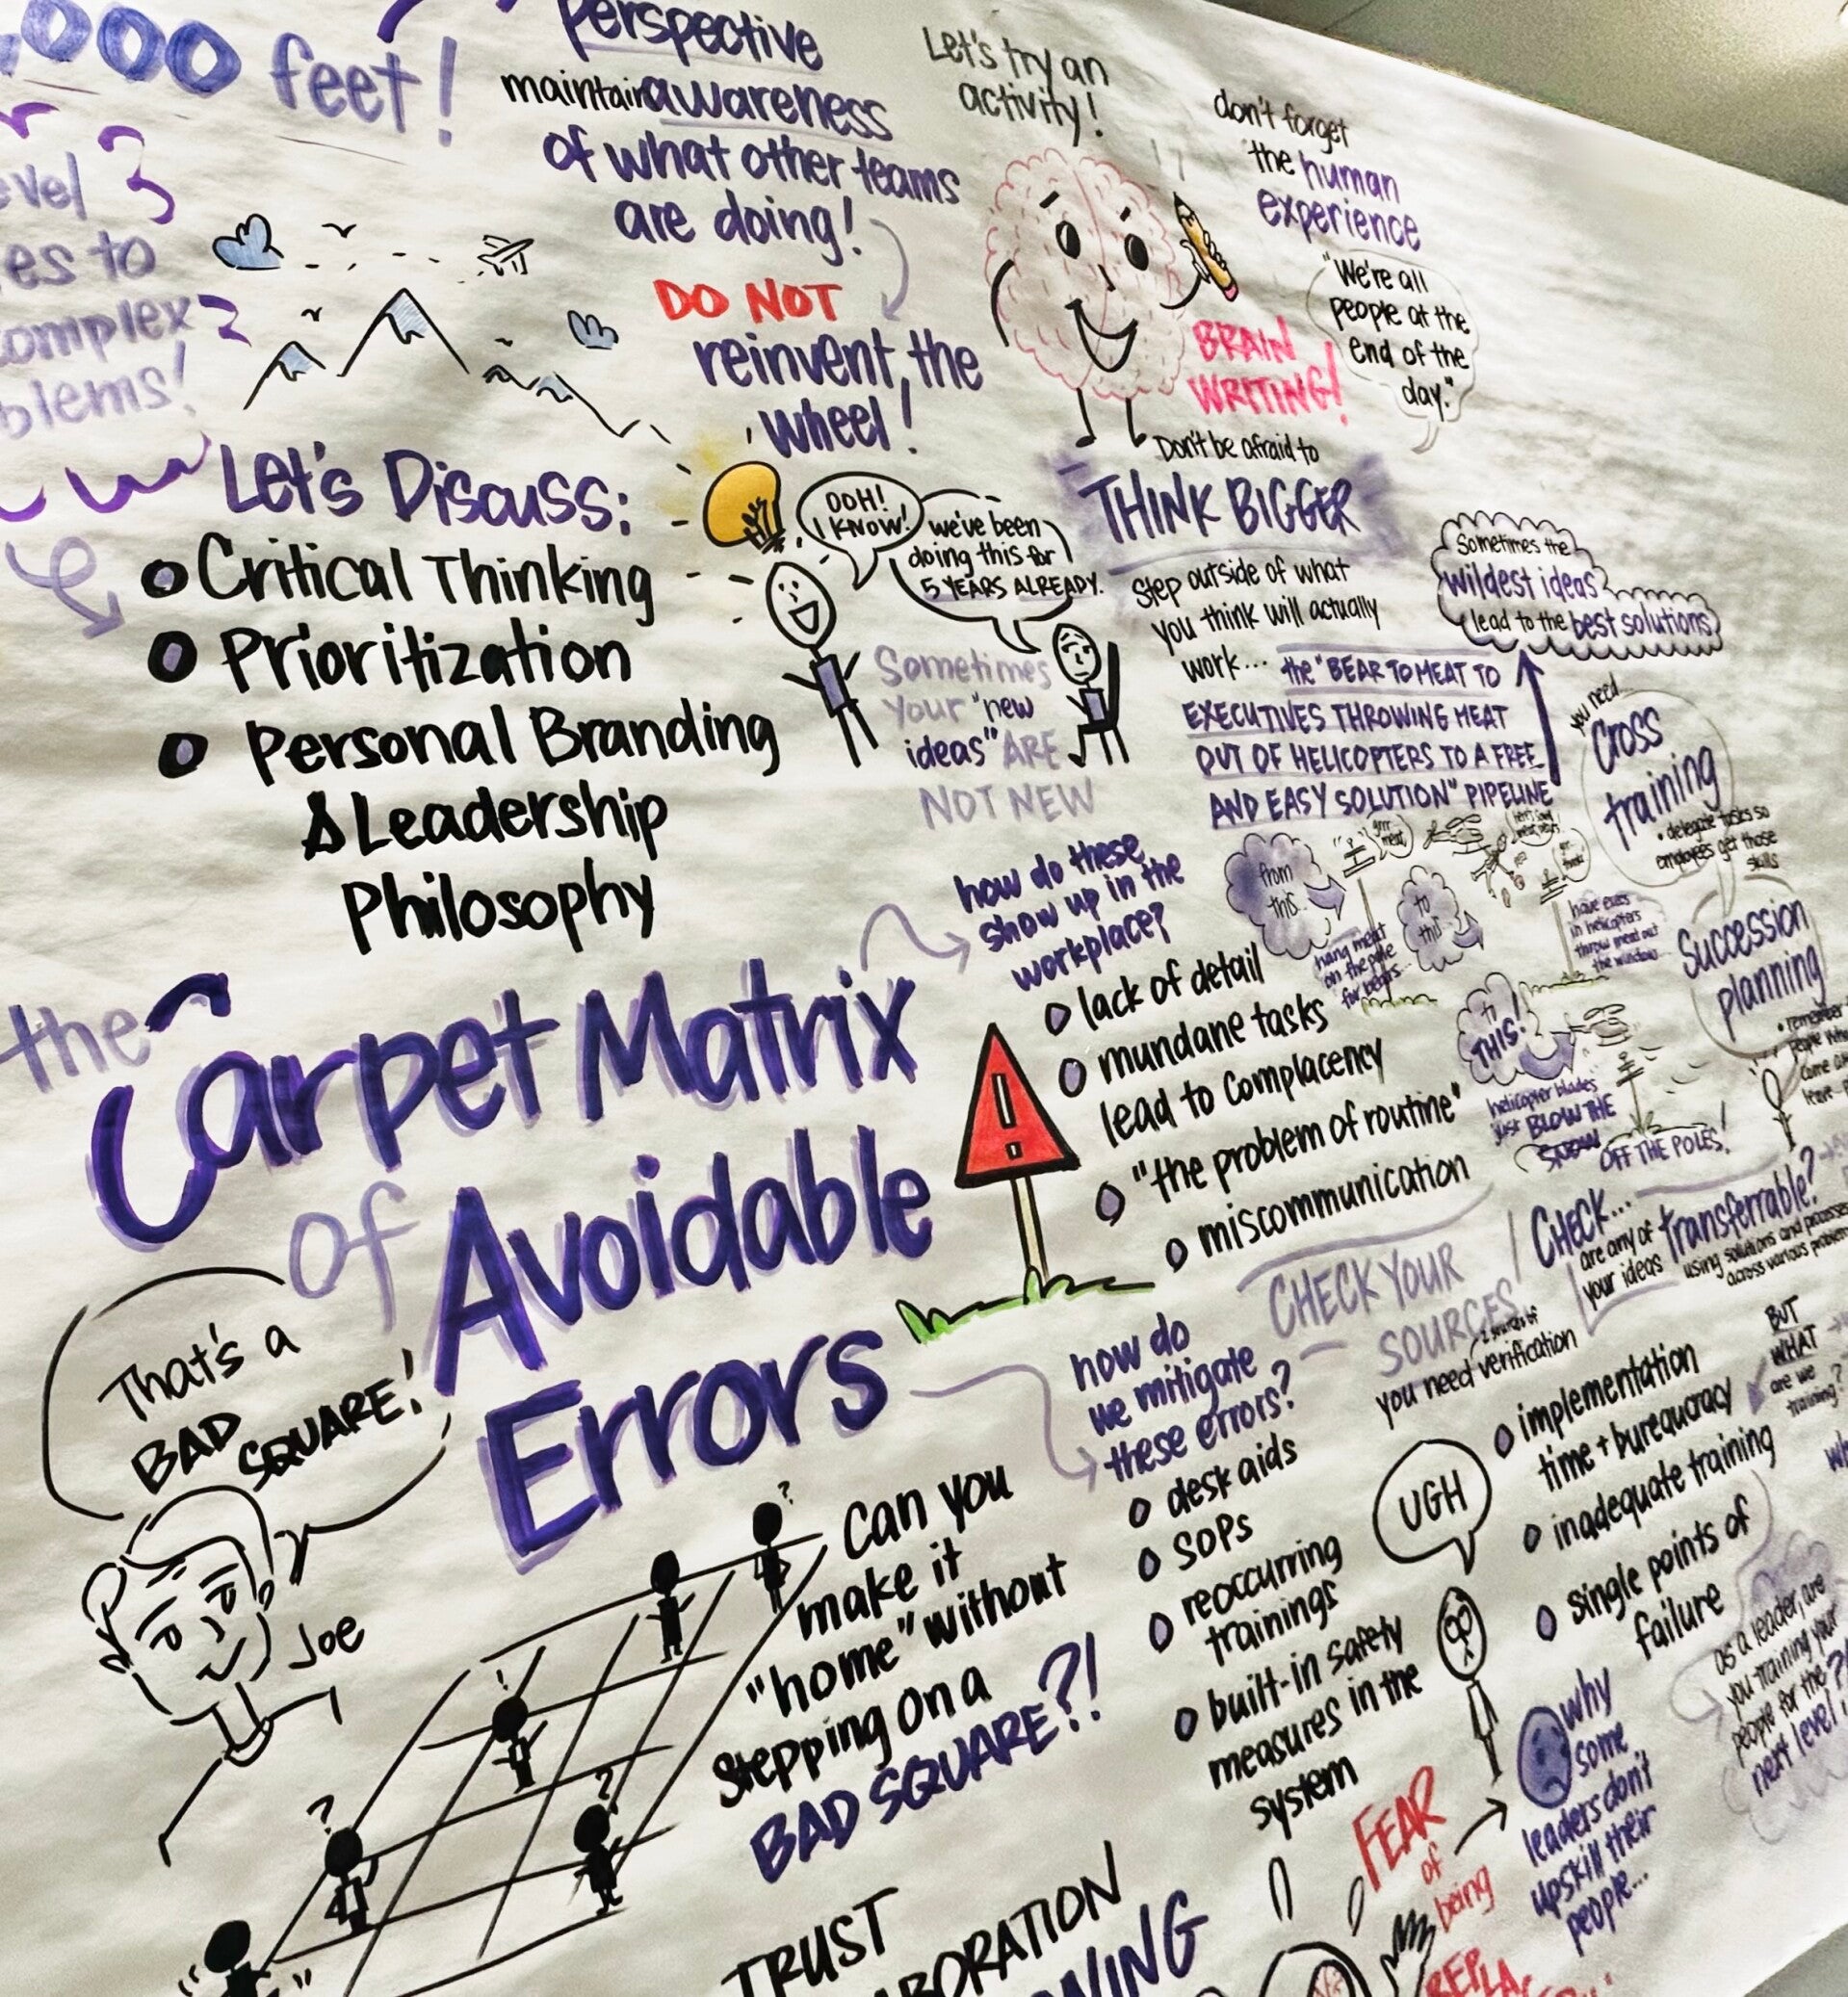 ,000 feet!
evel 3
es to
complex
blems!
perspective
maintain awareness
of what other teams
are doing!
DO NOT
reinvent, the
wheel!
Let's try an
activity!
BRAIN
WRITING!
don't forget
the human
experience
"We're all
people at the
end of the
day."
Let's Discuss:
Critical Thinking
Prioritization
Personal Branding
& Leadership
Philosophy
OOH!
I KNOW!
we've been
doing this for
5 YEARS ALREADY.
Sometimes
your "new
ideas" ARE
NOT NEW
Don't be afraid to
THINK BIGGER
Step outside of what
you think will actually
work... the "BEAR TO MEAT TO
EXECUTIVES THROWING MEAT
OUT OF HELICOPTERS TO A FREE
AND EASY SOLUTION" PIPELINE
Sometimes the
wildest ideas
lead to the best solutions
from
this...
hang meat
on the pole
for bears...
grrr
meat
to
this
have execs
in helicopters
throw meat out
the window...
to
THIS!
helicopter blades
just BLOW THE
SNOW OFF THE POLES!
you need
Cross
training
• delegate tasks so
employees get those
skills
Succession
planning
• remember
people
come
leave...
the Carpet Matrix
of Avoidable
Errors
how do these
show up in the
workplace?
lack of detail
mundane tasks
lead to complacency
"the problem of routine"
miscommunication
CHECK YOUR
SOURCES
you need verification
CHECK...
are any of
your ideas transferrable?
using solutions and processes
across various problems
how do
we mitigate
these errors?
desk aids
SOPs
reoccurring
trainings
built-in safety
measures in the
system
implementation
time + bureaucracy
inadequate training
single points of
failure
BUT
WHAT
are we
training?
UGH
as a leader, are
you training your
people for the
next level?!
why
some
leaders don't
upskill their
people...
FEAR
of
being
REPLA
That's a
BAD
SQUARE!
Joe
Can you
make it
"home" without
stepping on a
BAD SQUARE?!
TRUST
BORATION
NING